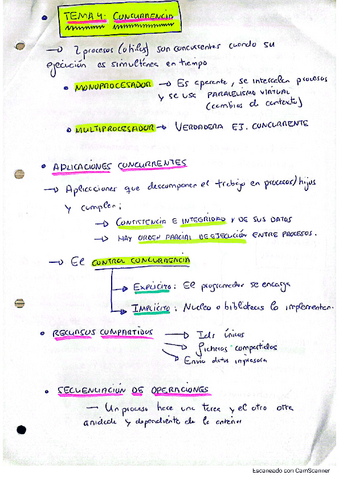 TEMA 4: CONCURRENCIA
→ 2 procesos (o hilos) son concurrentes cuando su
ejecución es simultánea en tiempo
• MONOPROCESADOR → Es aparente, se intercalan procesos
y se usa PARALELISMO VIRTUAL
(cambios de contexto)
• MULTIPROCESADOR → VERDADERA EJ. CONCURRENTE
• APLICACIONES CONCURRENTES
→ Aplicaciones que descomponen el trabajo en procesos/hijos
y cumplen:
→ CONSISTENCIA E INTEGRIDAD de sus DATOS
→ HAY ORDEN PARCIAL DE EJECUCIÓN ENTRE PROCESOS.
→ El CONTROL CONCURRENCIA
→ EXPLÍCITO: El programador se encarga
→ IMPLÍCITO: Nucleo o bibliotecas lo implementan
• RECURSOS COMPARTIDOS → Ids únicos
→ ficheros compartidos
→ Envio datos impresora
• SECUENCIACIÓN DE OPERACIONES
- Un proceso hace una tarea y el otro otra
y dependiente de la anterior
Escaneado con CamScanner